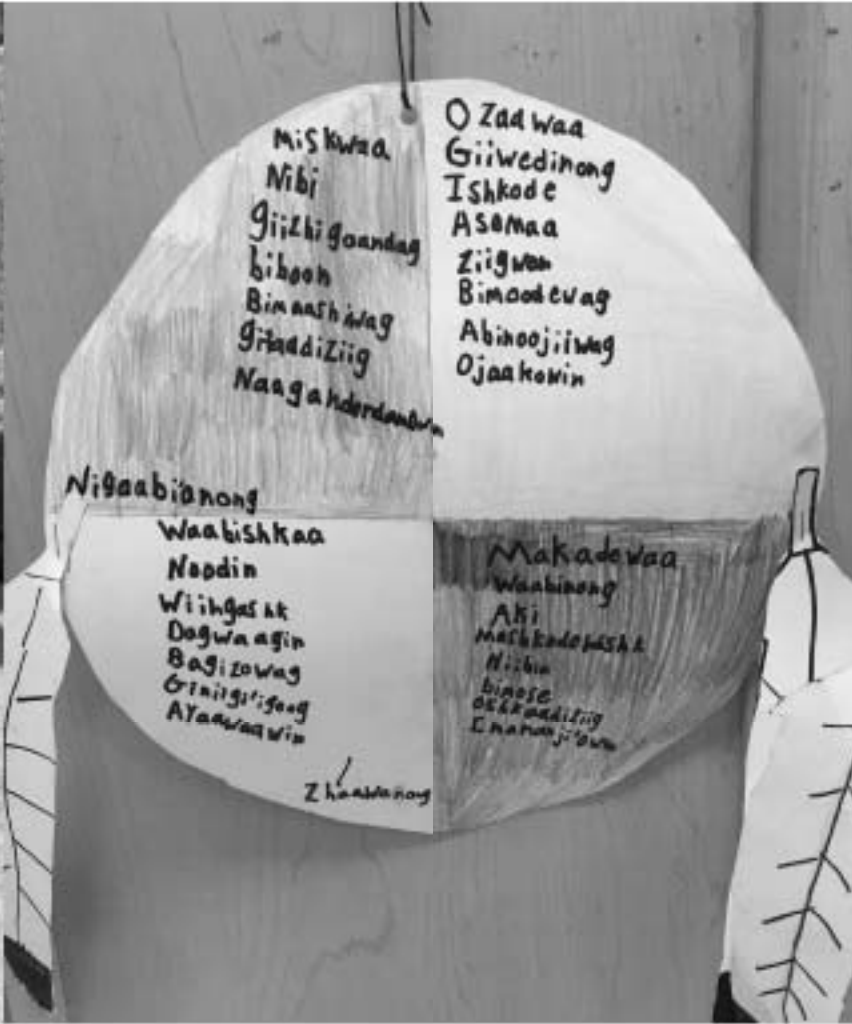 Miskwaa
Nibi
giizhigoandag
biboon
Bimaashiwag
gitaadiziig
Nigaabianong
Ozaawaa
Giiwedinong
Ishkode
Asemaa
Ziigwan
Bimoodewag
Abinoojiiwag
Ojaakowin
Waabishkaa
Noodin
Wiihgashk
Dagwaagin
Bagizowag
Ayaawaawin
Zhaawanong
Makadewaa
Waabinong
Aki
Mashkodewashk
Niibin
bimose
Oshkaadiziig